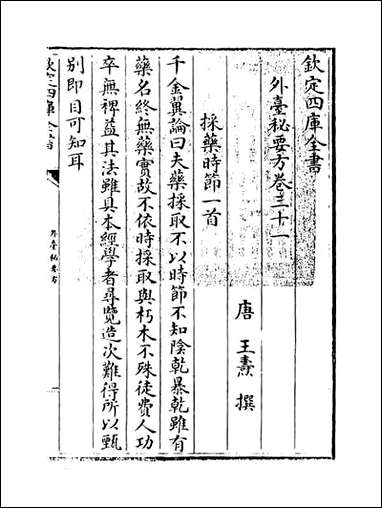 欽定四庫全書
外臺秘要方卷三十一
唐 王燾 撰
採藥時節一首
千金翼論曰夫藥採取不以時節不知陰乾暴乾雖有
藥名終無藥實故不依時採取與朽木不殊徒費人功
卒無裨益其法雖具本經學者尋覽造次難得所以甄
别即目可知耳
欽定四庫全書
外臺秘要方
一